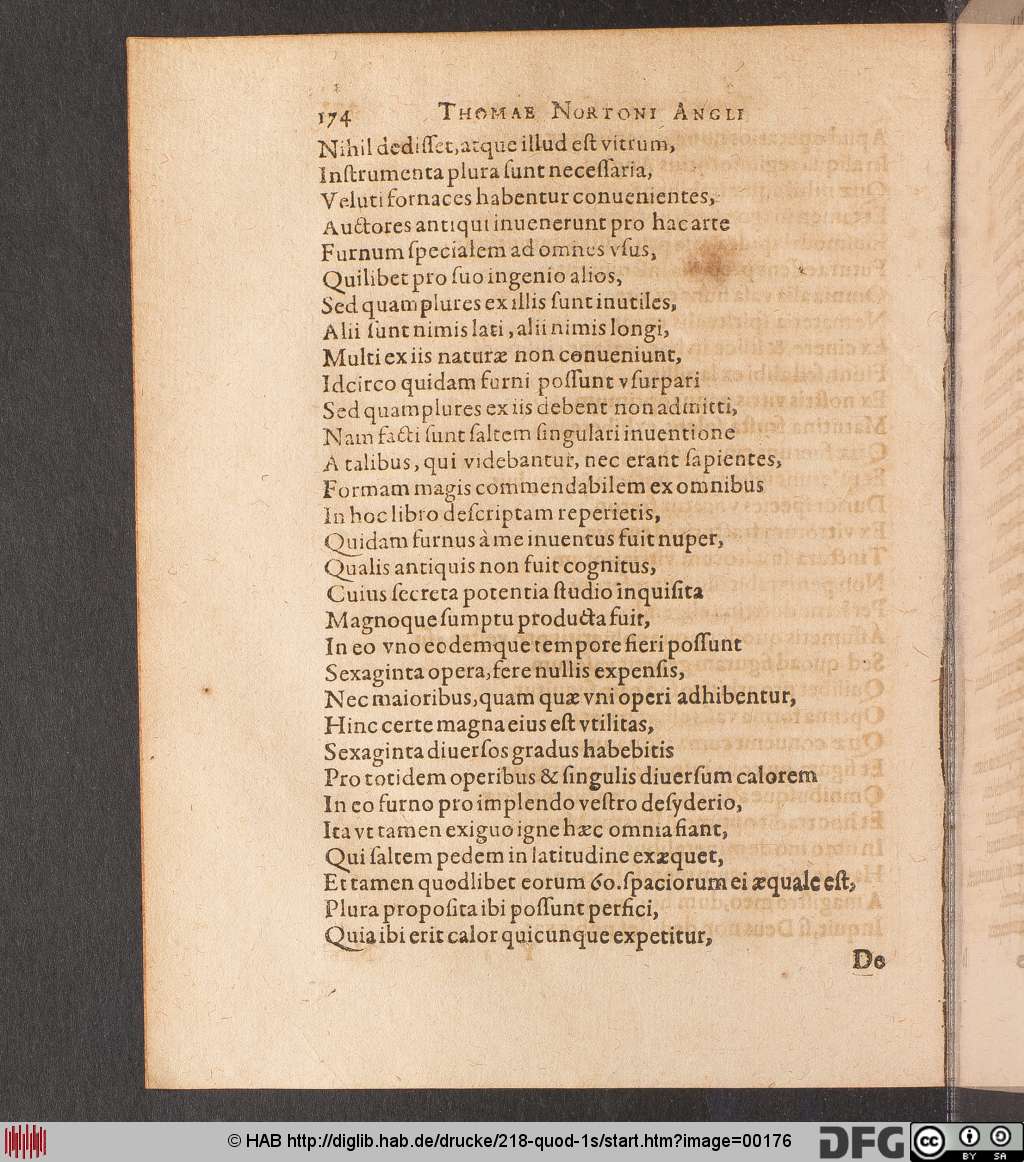 174 THOMAE NORTONI ANGLI
Nihil dedisset, atque illud est vitrum,
Instrumenta plura sunt necessaria,
Veluti fornaces habentur conuenientes,
Auctores antiqui inuenerunt pro hac arte
Furnum specialem ad omnes vsus,
Quilibet pro suo ingenio alios,
Sed quamplures ex illis sunt inutiles,
Alii sunt nimis lati, alii nimis longi,
Multi ex iis naturæ non conueniunt,
Idcirco quidam furni possunt vsurpari
Sed quamplures ex iis debent non admitti,
Nam facti sunt saltem singulari inuentione
A talibus, qui videbantur, nec erant sapientes,
Formam magis commendabilem ex omnibus
In hoc libro descriptam reperietis,
Quidam furnus à me inuentus fuit nuper,
Qualis antiquis non fuit cognitus,
Cuius secreta potentia studio inquisita
Magnoque sumptu producta fuit,
In eo vno eodemque tempore fieri possunt
Sexaginta opera, fere nullis expensis,
Nec maioribus, quam quæ vni operi adhibentur,
Hinc certe magna eius est vtilitas,
Sexaginta diuersos gradus habebitis
Pro totidem operibus & singulis diuersum calorem
In eo furno pro implendo vestro desyderio,
Ita vt tamen exiguo igne hæc omnia fiant,
Qui saltem pedem in latitudine exæquet,
Et tamen quodlibet eorum 60. spaciorum ei æquale est,
Plura proposita ibi possunt perfici,
Quia ibi erit calor quicunque expetitur,
De
© HAB http://diglib.hab.de/drucke/218-quod-1s/start.htm?image=00176 DFG cc BY SA